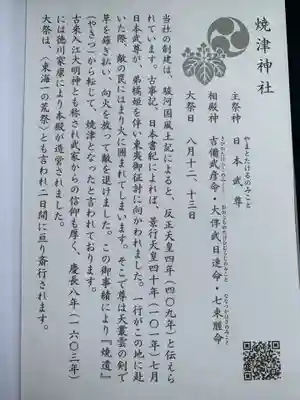 焼津神社
主祭神 日本武尊
やまとたけるのみこと
相殿神 吉備武彦命・大伴武日連命・七束脛命
大祭日 八月十二、十三日
当社の創建は、駿河国風土記によると、反正天皇四年（四〇九年）と伝えら
れています。古事記、日本書紀によれば、景行天皇四十年（一〇一年）七月
日本武尊が、弟橘姫を伴い東夷御征討に向かわれました。一行がこの地に赴
いた際、敵の罠にはまり火に囲まれてしまいます。そこで尊は天叢雲の剣で
草を薙ぎ払い、向火を放って敵を退けました。この御事績により『焼遺』
（やきつ）から転じて、焼津となったと言われております。
古来入江大明神とも称され武家からの信仰も厚く、慶長八年（一六〇三年）
には徳川家康により本殿が造営されました。
大祭は、〈東海一の荒祭〉とも言われ二日間に亘り斎行されます。